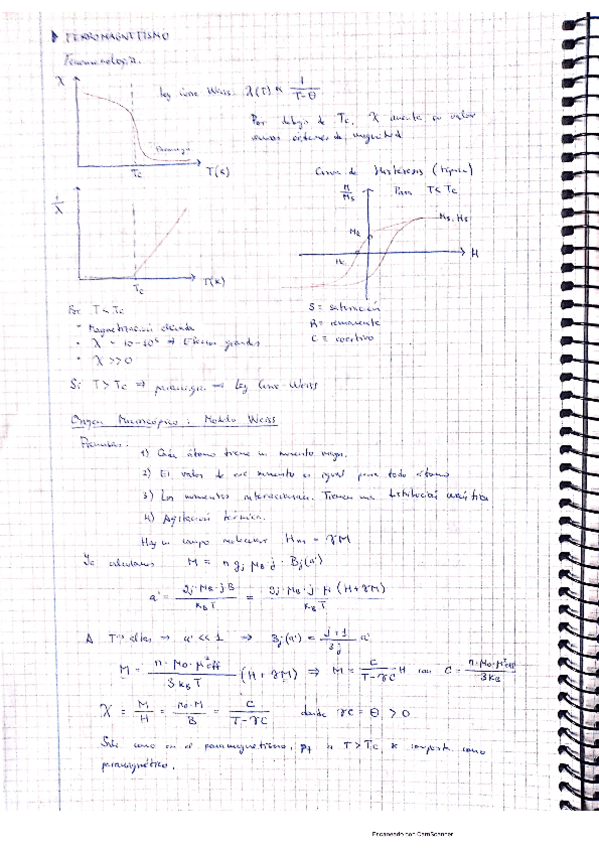 ▶ FERROMAGNETISMO
Fenomenología.
χ
Ley Curie Weiss. χ(T) ∝ 1/(T-Θ)
Por debajo de Tc, χ aumenta su valor
varios órdenes de magnitud
Paramagn
Tc T(K)
Curva de Histéresis (típica)
M/Ms Para T < Tc
1/χ
Ms, Hs
MR
Hc
H
Tc T(K)
S = saturación
R = remanente
C = coercitivo
Magnetización elevada
χ >> 0
Si T > Tc ⇒ paramagn → Ley Curie-Weiss
Origen Macroscópico: Modelo Weiss
Premisas.
1) Cada átomo tiene un momento magn.
2) El valor de ese momento es igual para todo átomo
3) Los momentos interaccionan. Tienen una
4) Agitación térmica.
Hay un campo molecular Hm = γM
Ya calculamos M = n gj μB · j · Bj(a')
a' = gj·μB·j B / kB T = gj·μB·j·μ (H+γM) / kB T
A T altas → a' << 1 → Bj(a') = (j+1)/3j a'
M = n·μo·μ²eff / 3kB T (H + γM) ⇒ M = C/(T-γC) H con C = n·μo·μ²eff / 3kB
χ = M/H = μo·M/B = C/(T-γC) donde γC = Θ > 0
Sale como en el paramagnetismo, T > Tc se comporta como
paramagnético.
Escaneado con CamScanner